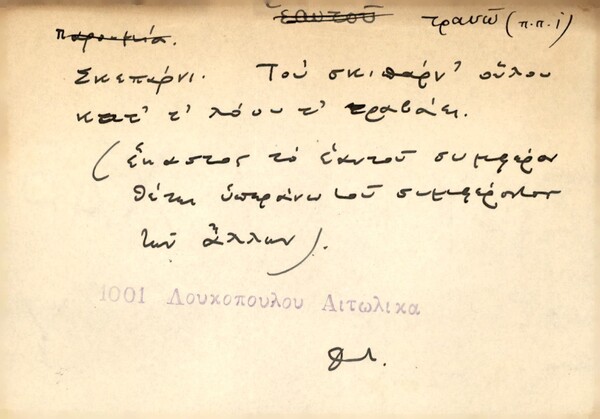 ἑαυτοῦ τραυῶ (π.π.ι)
Παροιμία.
Σκεπάρνι. Τοὺ σκιπάρν' οὕλου
κατ' τ' λόου τ' τραβάει.
(Ἕκαστος τὸ ἑαυτοῦ συμφέρον
θέτει ὑπεράνω τοῦ συμφέροντος
τῶν ἄλλων).
1001 Λουκοπουλου Αιτωλικα